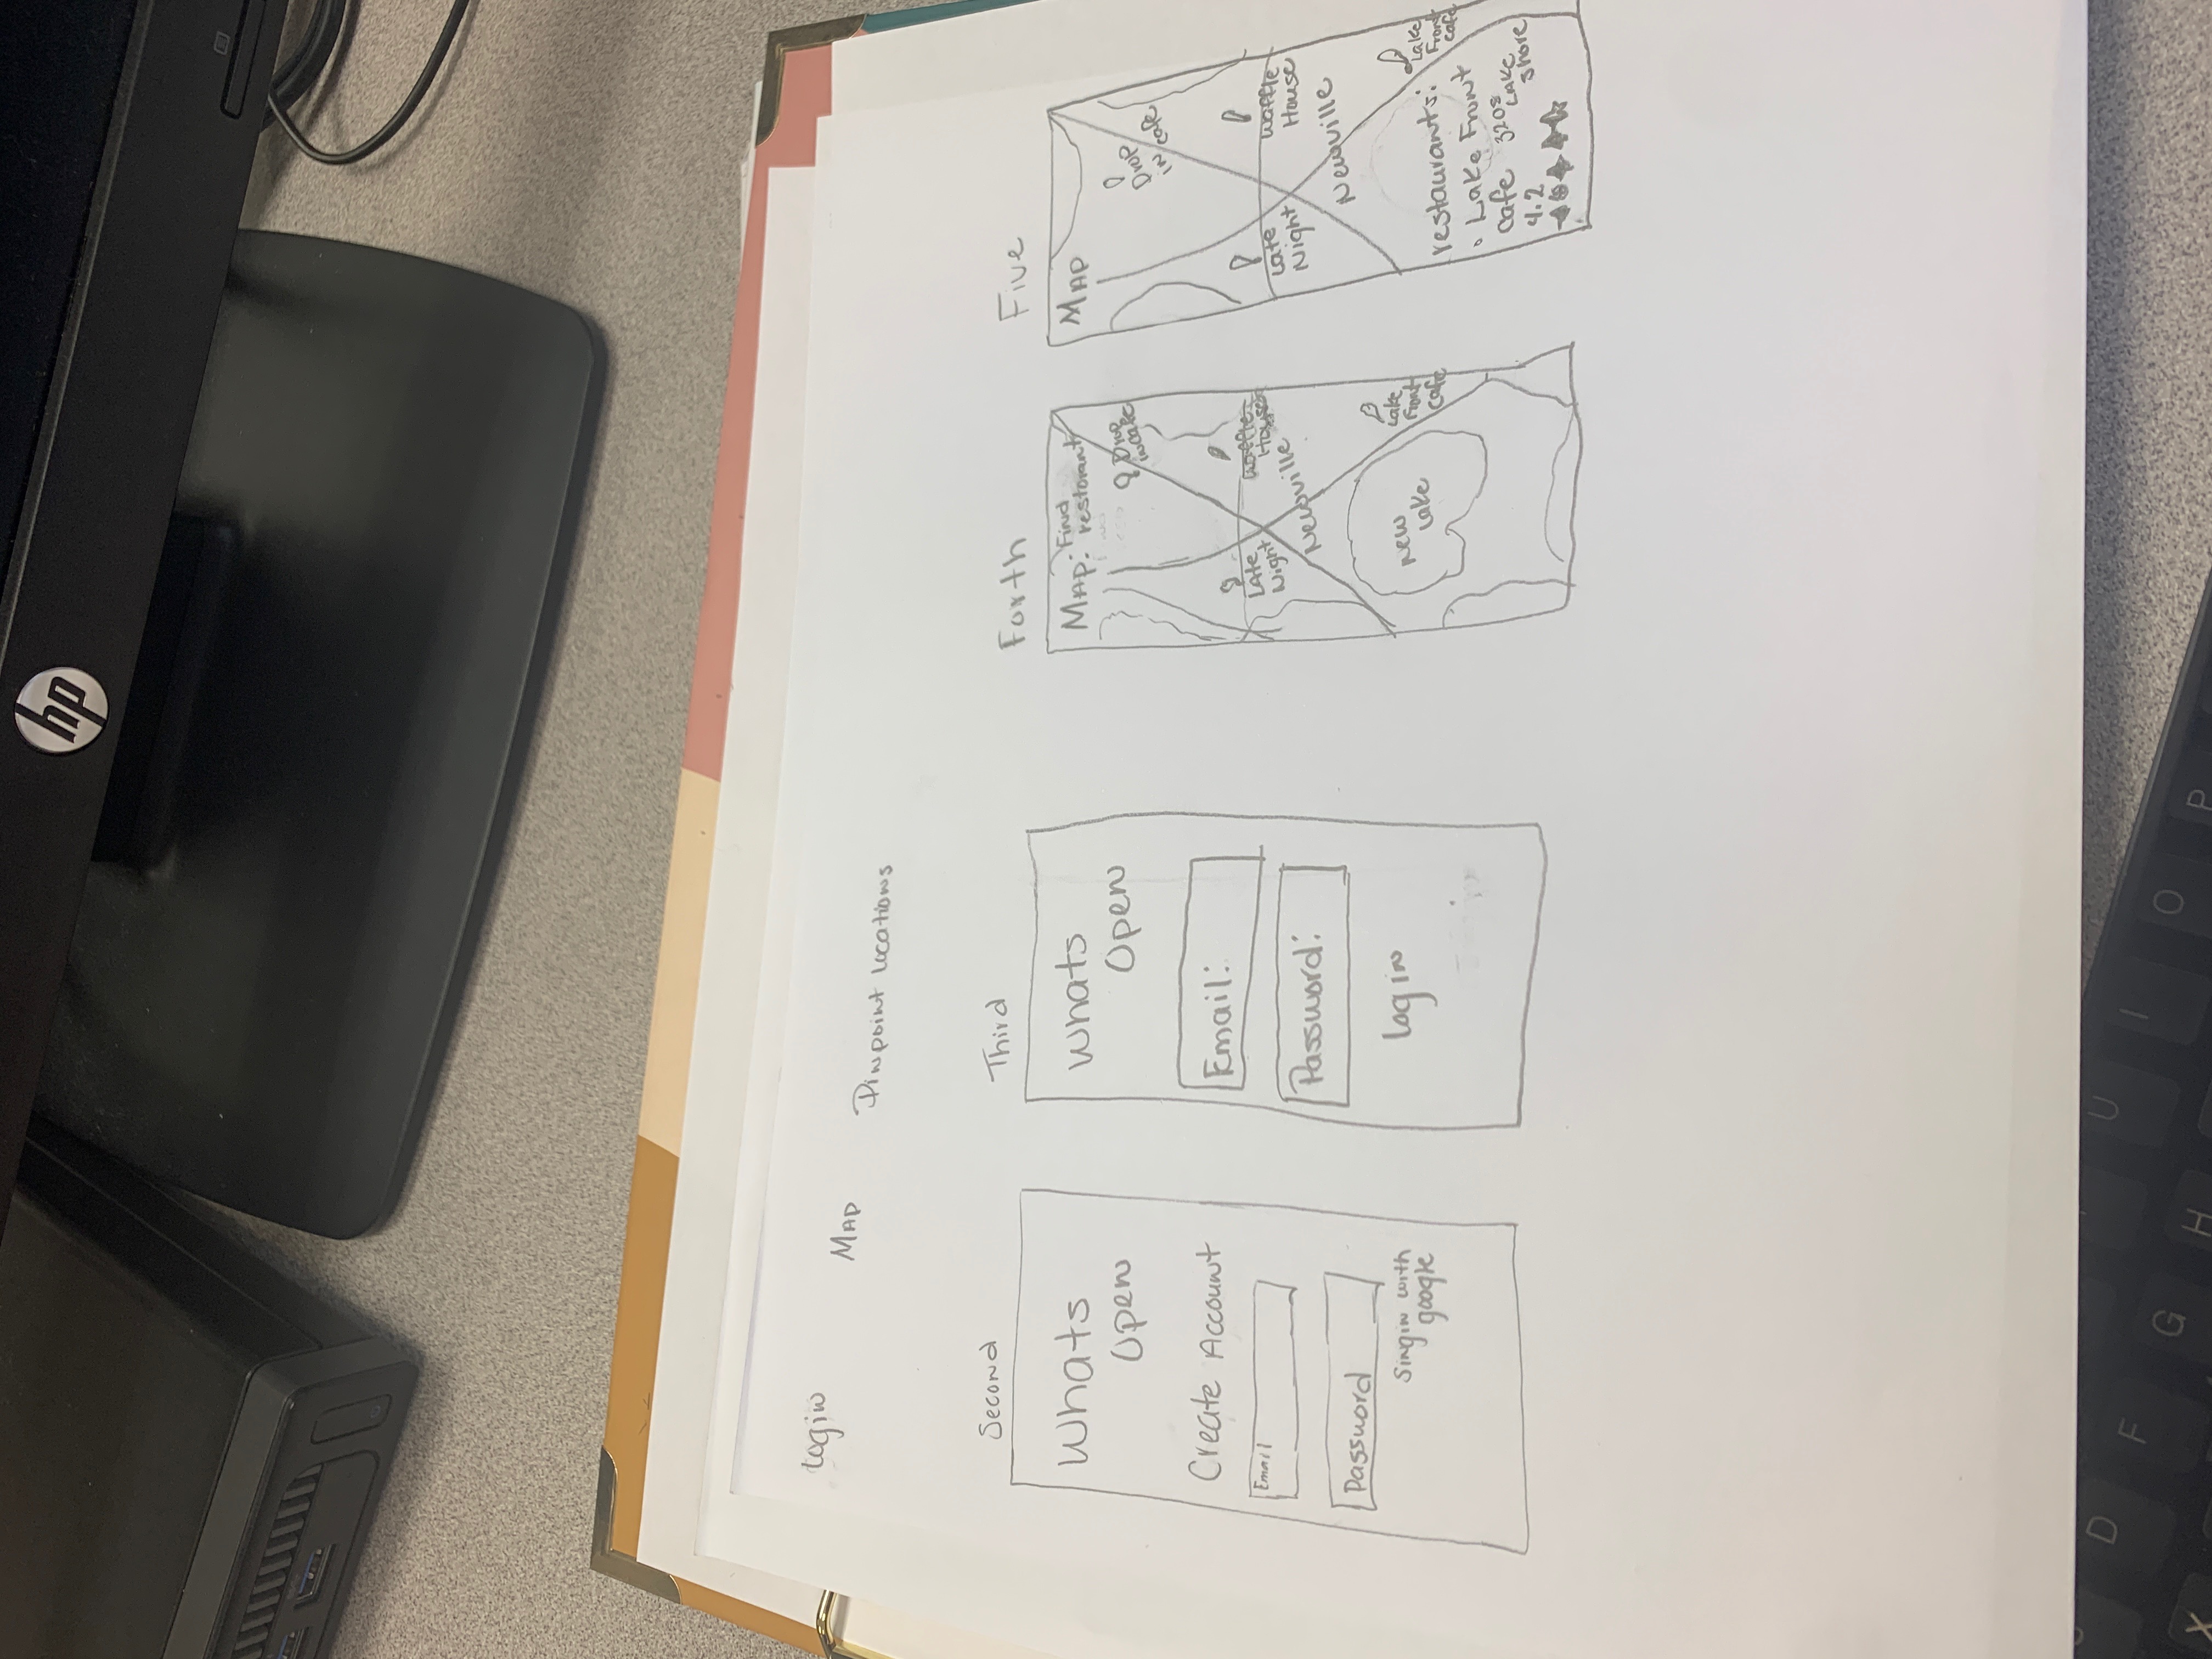 hp
Login
Map
Pinpoint Locations
Second
Whats
Open
Create Account
Email
Password
Singin with
google
Third
Whats
Open
Email:
Password:
Log in
Forth
Map: Find
restorant
Drop
in cafe
Late
Night
Waffle
House
Newville
New
Lake
Lake
Front
Cafe
Five
Map
Drop
in cafe
Late
Night
Waffle
House
Newville
Lake
Front
cafe
restaurants:
• Lake Front
cafe 320s
Lake
Shore
4.2
D
F
G
H
U
I
O
P
X